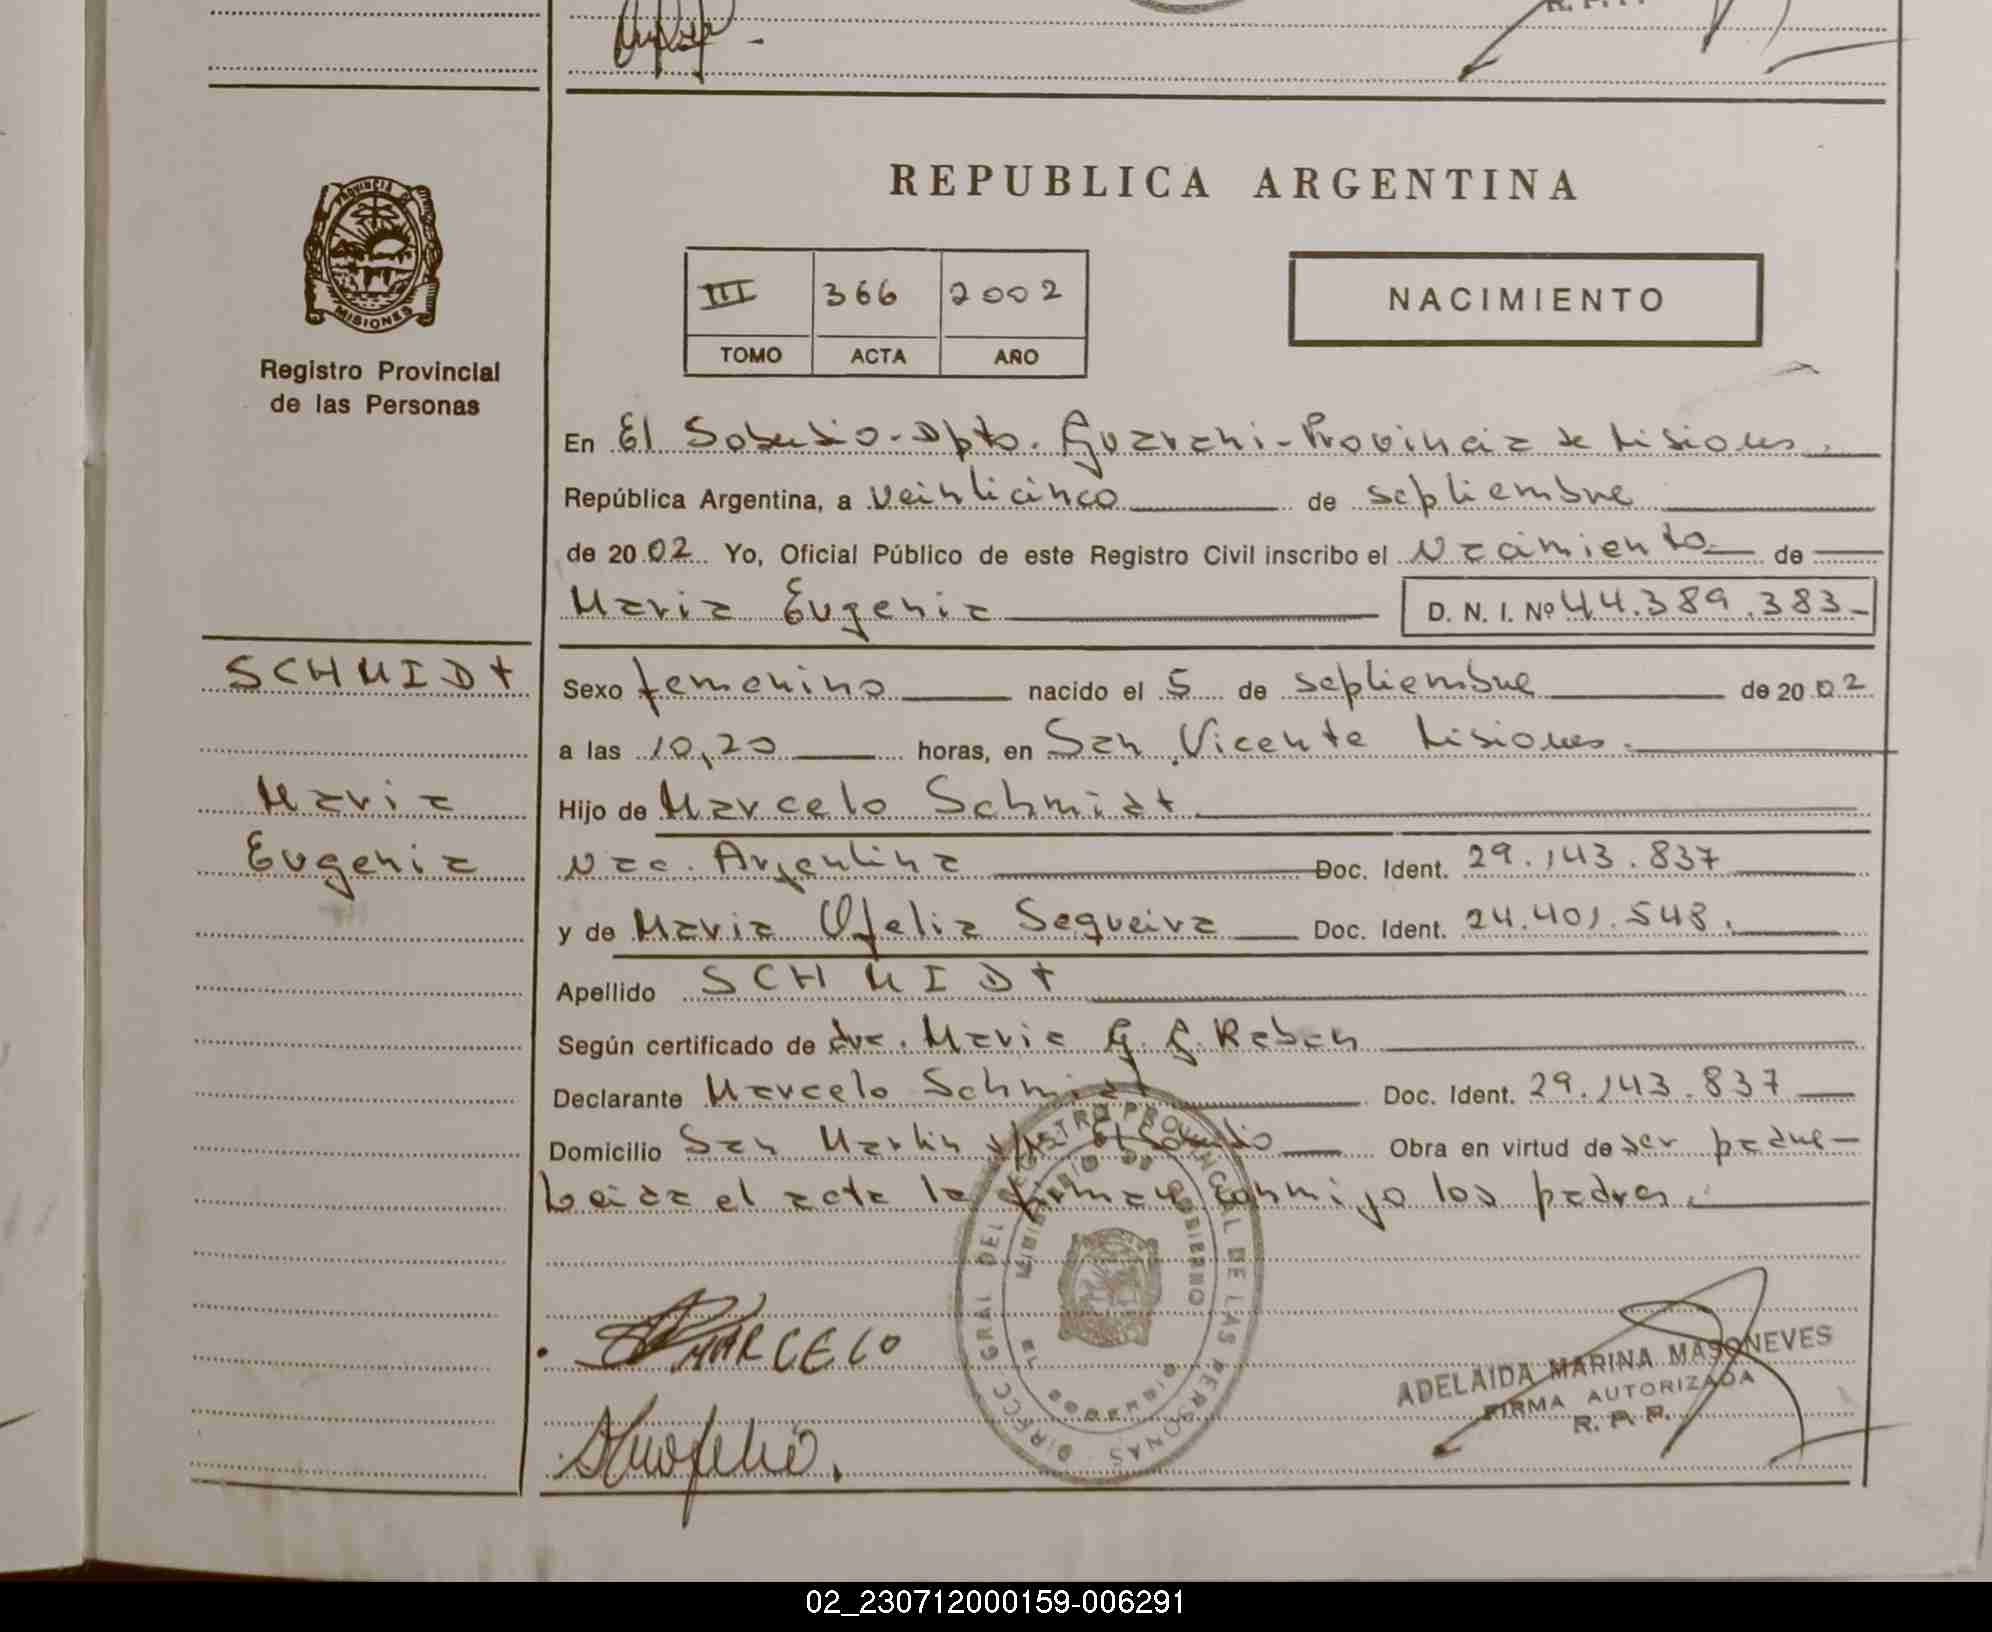 REPUBLICA ARGENTINA
PROVINCIA DE
MISIONES
Registro Provincial
de las Personas
III 366 2002
TOMO ACTA AÑO
NACIMIENTO
En El Soberbio - Dpto. Guarani - Provincia de Misiones.
República Argentina, a veinticinco de septiembre
de 2002 Yo, Oficial Público de este Registro Civil inscribo el Nacimiento de
Maria Eugenia D. N. I. Nº 44.389.383-
SCHMIDt
Maria
Eugenia
Sexo femenino nacido el 5 de septiembre de 2002
a las 10,20 horas, en San Vicente Misiones.
Hijo de Marcelo Schmidt
Nac. Argentina Doc. Ident. 29.143.837
y de Maria Ofelia Sequeira Doc. Ident. 24.401.548.
Apellido SCHMIDt
Según certificado de dra. Maria G. G. Raban
Declarante Marcelo Schmidt Doc. Ident. 29.143.837
Domicilio San Martin El Soberbio Obra en virtud de ser padre-
Leida el acta la firman conmigo los padres.
DIRECC GRAL DEL REGISTRO PROVINCIAL DE LAS PERSONAS
MINISTERIO DE GOBIERNO
EL SOBERBIO
MARCELO
ADELAIDA MARINA MASONEVES
FIRMA AUTORIZADA
R. P. P.
02_230712000159-006291